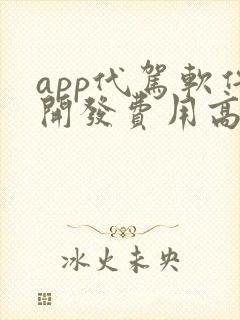 app代駕軟件
開發費用高
冰火未央